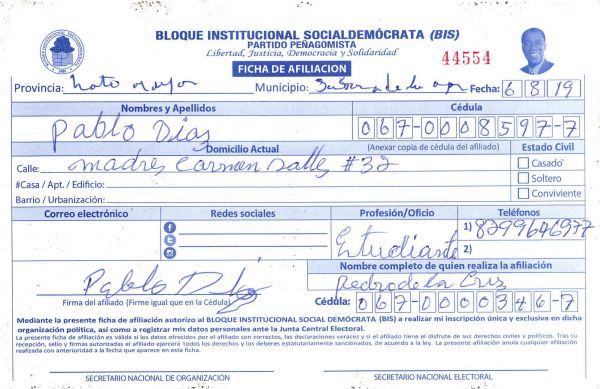 BLOQUE INSTITUCIONAL SOCIALDEMÓCRATA (BIS)
PARTIDO PEÑAGOMISTA
Libertad, Justicia, Democracia y Solidaridad
44554
FICHA DE AFILIACION
Provincia: Hato mayor Municipio: Sabana de la mar Fecha: 6 8 19
Nombres y Apellidos Cédula
Pablo Dias 067-0008597-7
Domicilio Actual (Anexar copia de cédula del afiliado) Estado Civil
Calle: madre Carmen Salles #32 Casado
#Casa / Apt. / Edificio: Soltero
Barrio / Urbanización: Conviviente
Correo electrónico Redes sociales Profesión/Oficio Teléfonos
Estudiante 1) 8299646977
2)
Nombre completo de quien realiza la afiliación
Pablo Pedro de la Cruz
Firma del afiliado (Firme igual que en la Cédula) Cédula: 067-0000346-7
Mediante la presente ficha de afiliación autorizo al BLOQUE INSTITUCIONAL SOCIAL DEMÓCRATA (BIS) a realizar mi inscripción única y exclusiva en dicha
organización política, así como a registrar mis datos personales ante la Junta Central Electoral.
La presente ficha de afiliación es válida si los datos ofrecidos por el afiliado son correctos, las declaraciones veraces y si el afiliado tiene el disfrute de sus derechos civiles y políticos. Tras su
recepción, sello y firmas autorizadas el afiliado ejercerá todos los derechos y los deberes estatutariamente sancionados, de acuerdo a la ley. La presente afiliación anula cualquier afiliación
realizada con anterioridad a la fecha que aparece en esta ficha.
SECRETARIO NACIONAL DE ORGANIZACIÓN SECRETARIO NACIONAL ELECTORAL